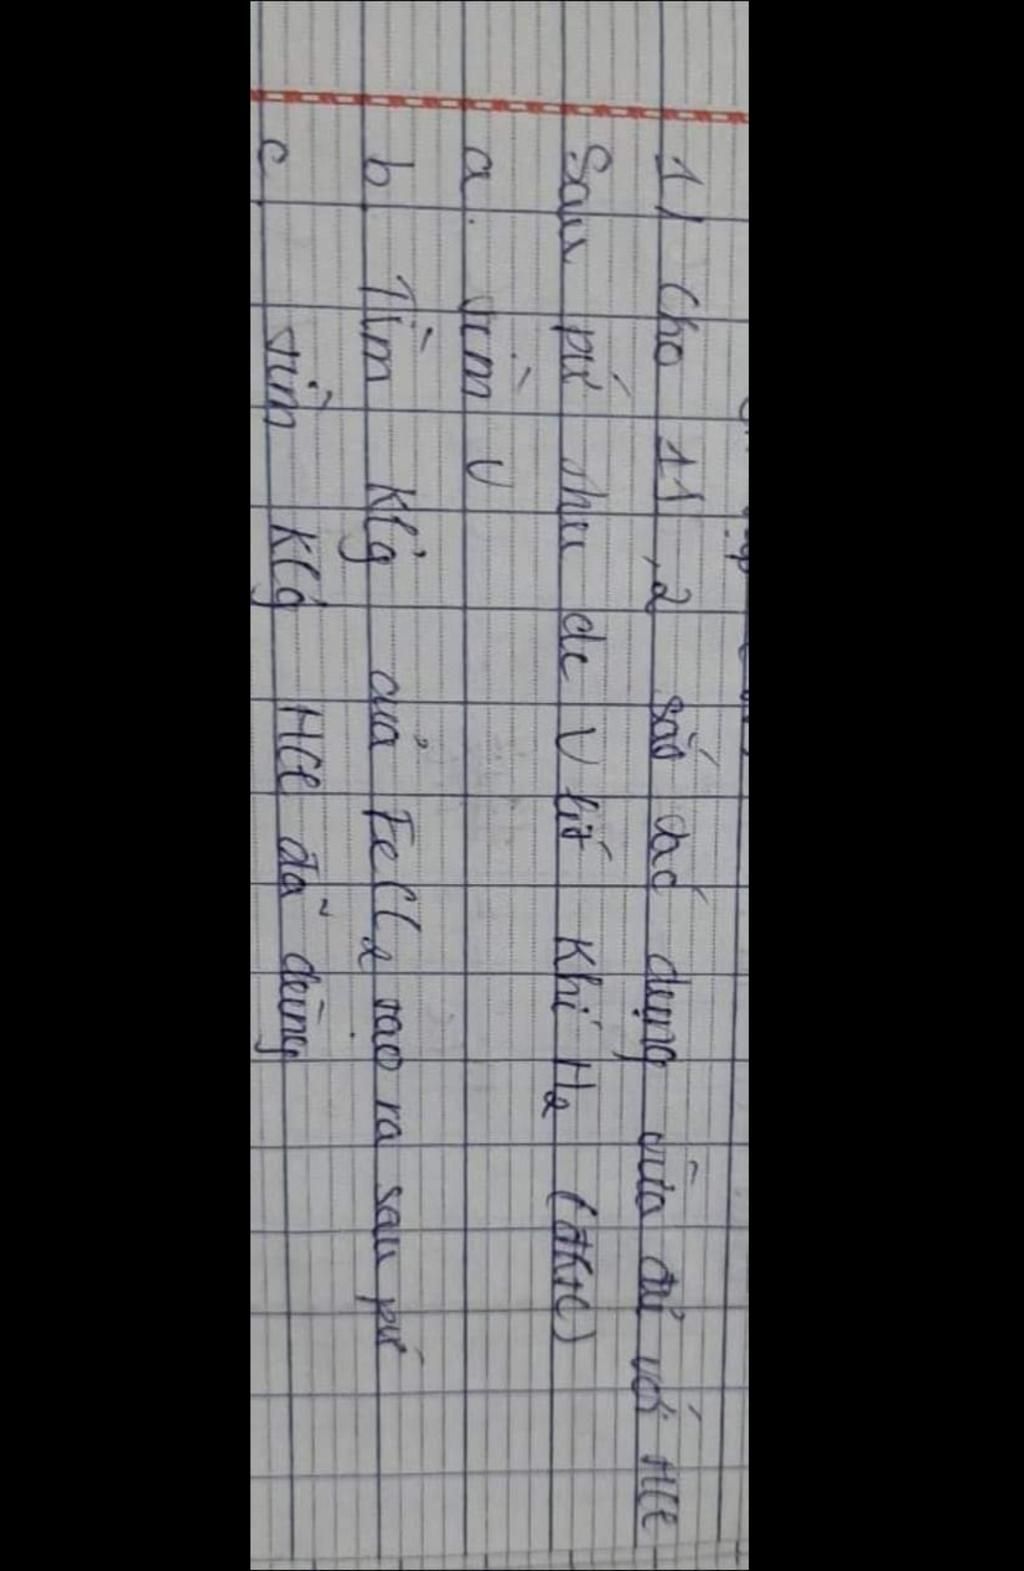 1) Cho 11,2 sắt tác dụng vừa đủ với HCl
Sau pứ thu đc V lít khí H2 (đktc)
a. tìm V
b Tìm klg của FeCl2 tạo ra sau pứ
c tìm klg HCl đã dùng